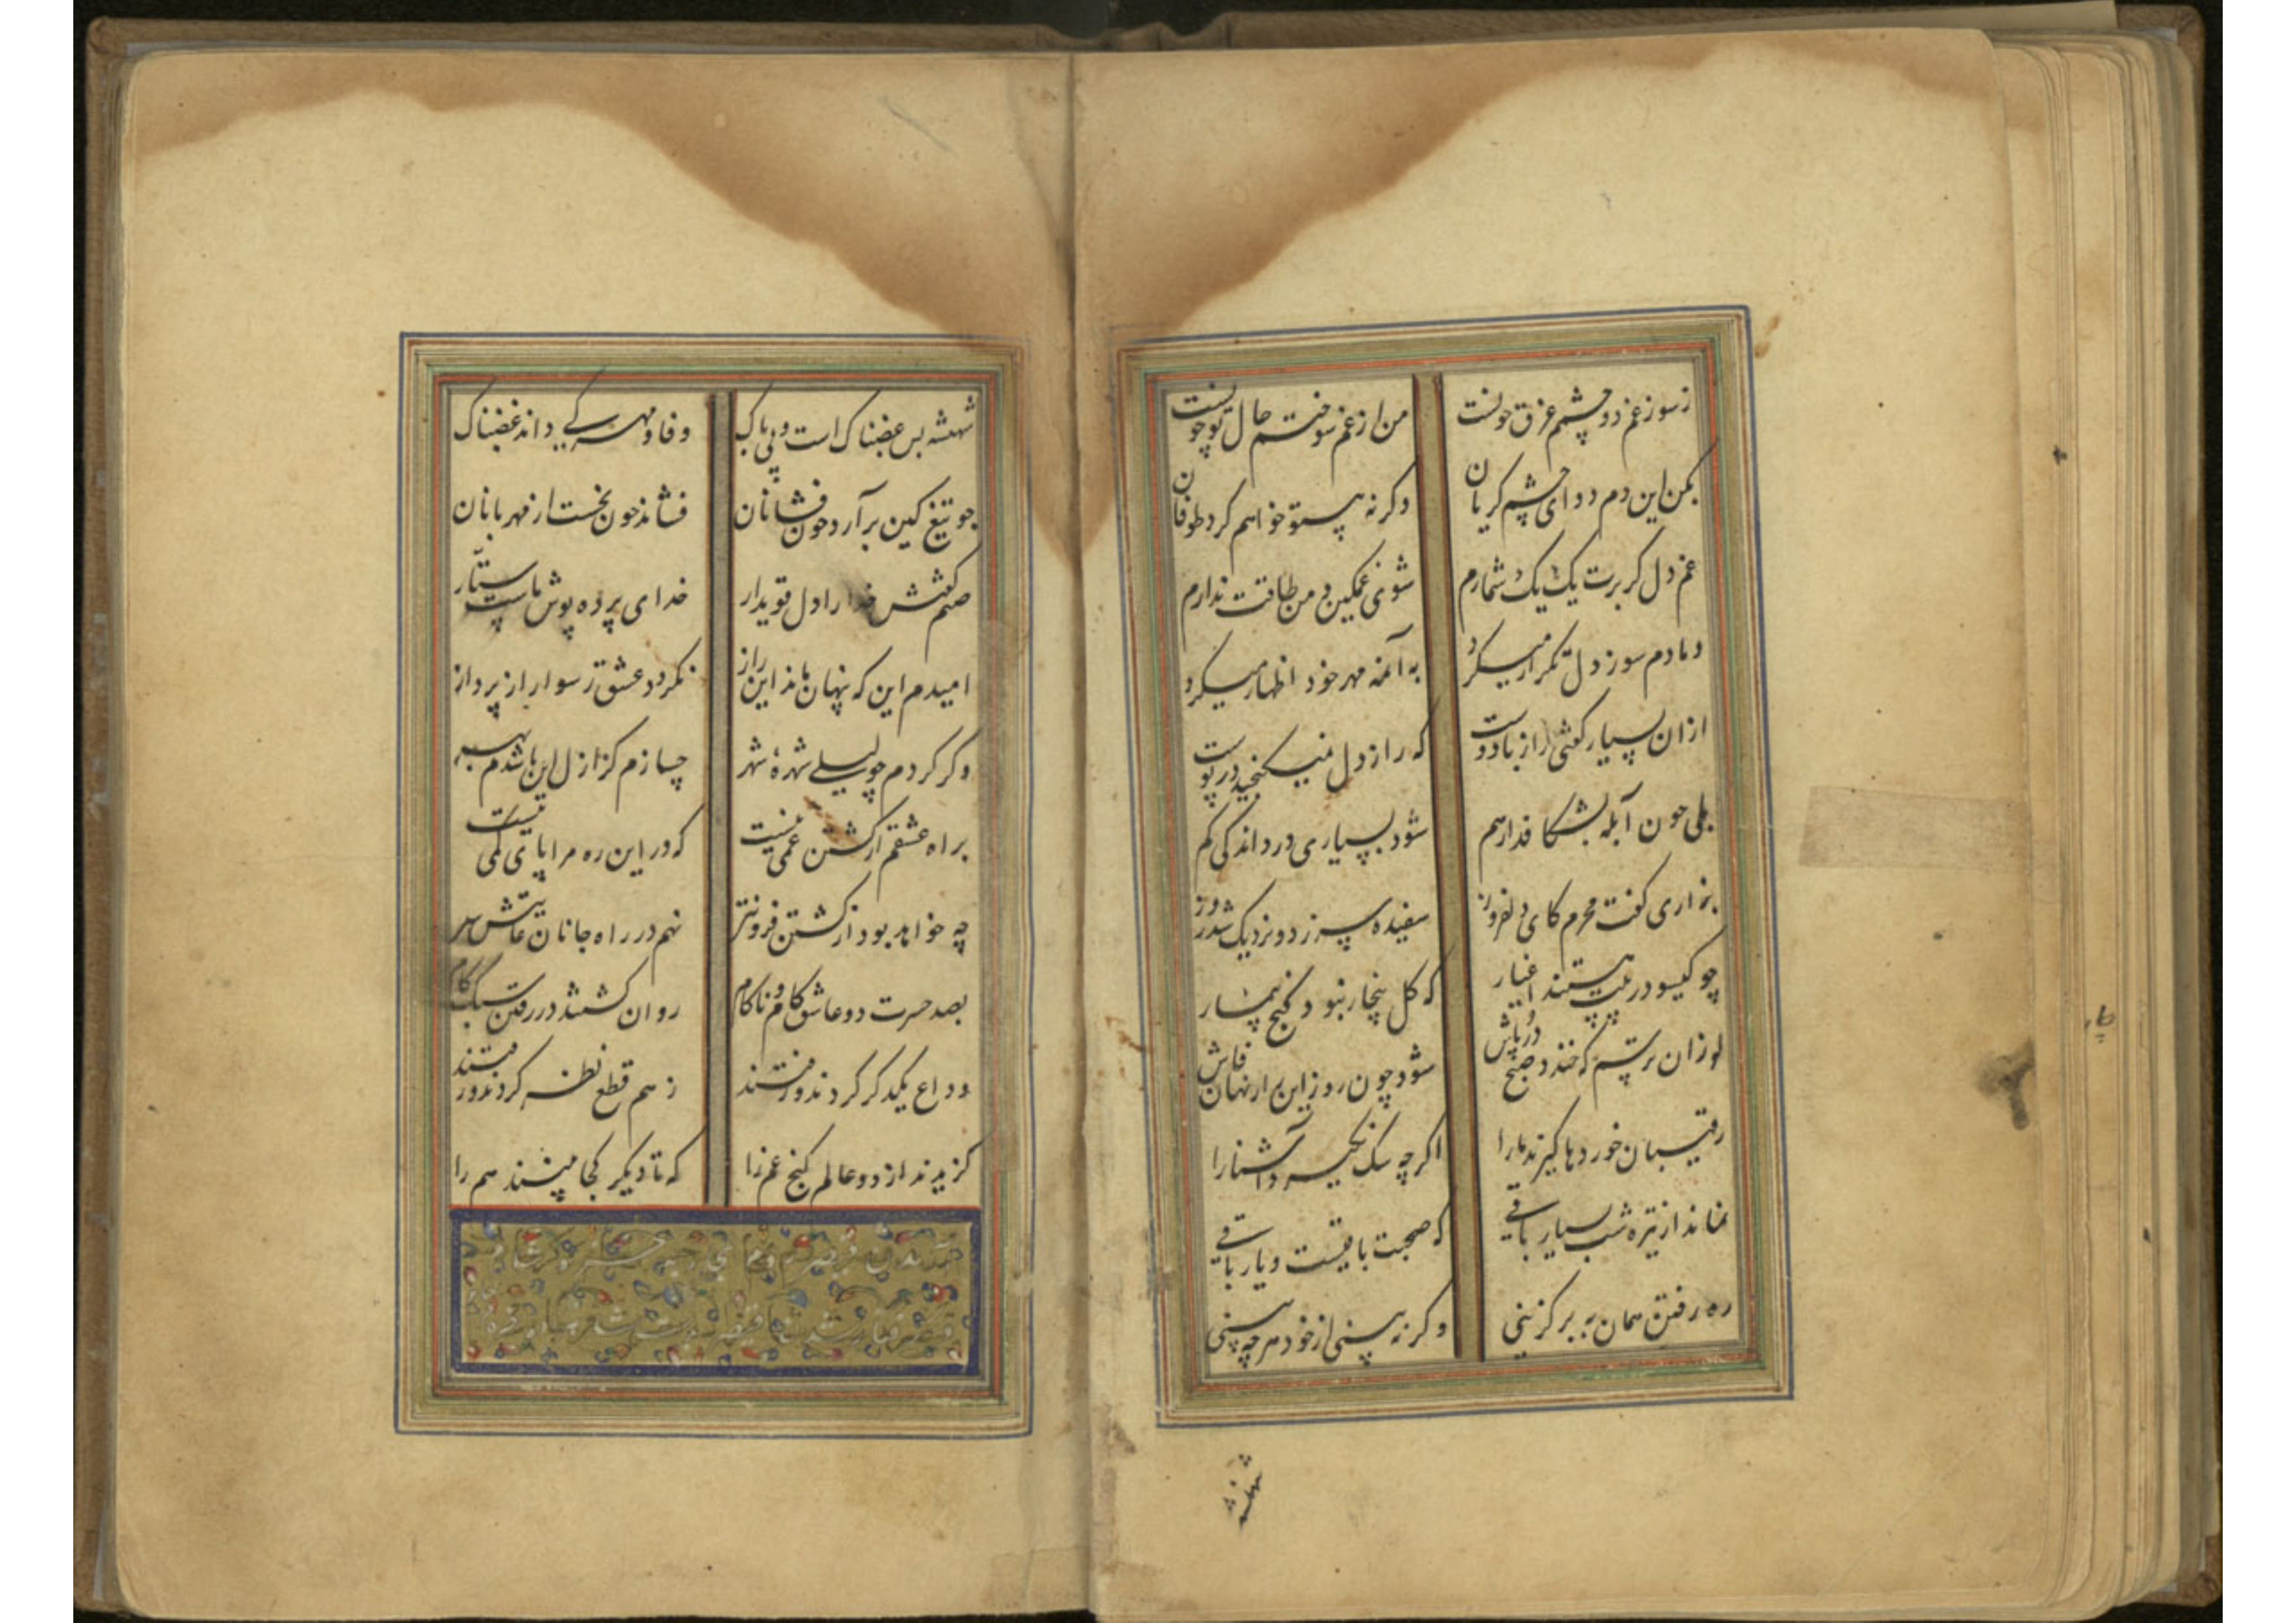 ز سوز غم دو چشم غرق خونست من از غم سوختم حال تو چونست
بکن این دم دوای چشم گریان وگرنه پیش تو خواهم کرد طوفان
غم دل گر برت یک یک شمارم شوی غمگین و من طاقت ندارم
دمادم سوز دل تکرار میکرد به آن مه مهر خود اظهار میکرد
از آن بسیار گفتی راز با دوست که راز دل نمیگنجید در پوست
بلی چون آبله بشکافد از هم شود بسیاری درد اندکی کم
بزاری گفت محرم کای دلفروز سفیده سر زد و نزدیک شد روز
چو گیسو در پیت هستند اغیار که گل بیخار نبود گنج بیمار
لرزان ترسم که خندد صبح در پاش شود چون روز این راز نهان فاش
رقیبان خورد ها گیرند ما را اگرچه سگ نگیرد آشنا را
نماند از تیره شب بسیار باقی که صحبت باقیست و یار باقی
ره رفتن همان به برگزینی وگرنه بینی از خود هرچه بینی
شهنشه
شهنشه بس غضبناک است و بی باک وفا و مهر کی داند غضبناک
چو تیغ کین برآرد خون فشانان فشاند خون نخست از مهربانان
صنم گفتش خدا را دل قوی دار خدای پرده پوش ماست ستار
امیدم این که پنهان ماند این راز نگردد عشق رسوا راز پرداز
وگر گردم چو لیلی شهرهٔ شهر چسازم کز ازل این باشدم بهر
براه عشقم از کشتن غمی نیست که در این ره مرا پای کمی نیست
چه خواهد بود از کشتن فزونتر نهم در راه جانان عاقبت سر
بصد حسرت دو عاشق کام و ناکام روان گشتند در رفتن سبک گام
وداع یکدگر کردند و رفتند ز هم قطع نظر کردند و رفتند
گزیدند از دو عالم کنج غم را که تا دیگر کجا بینند هم را